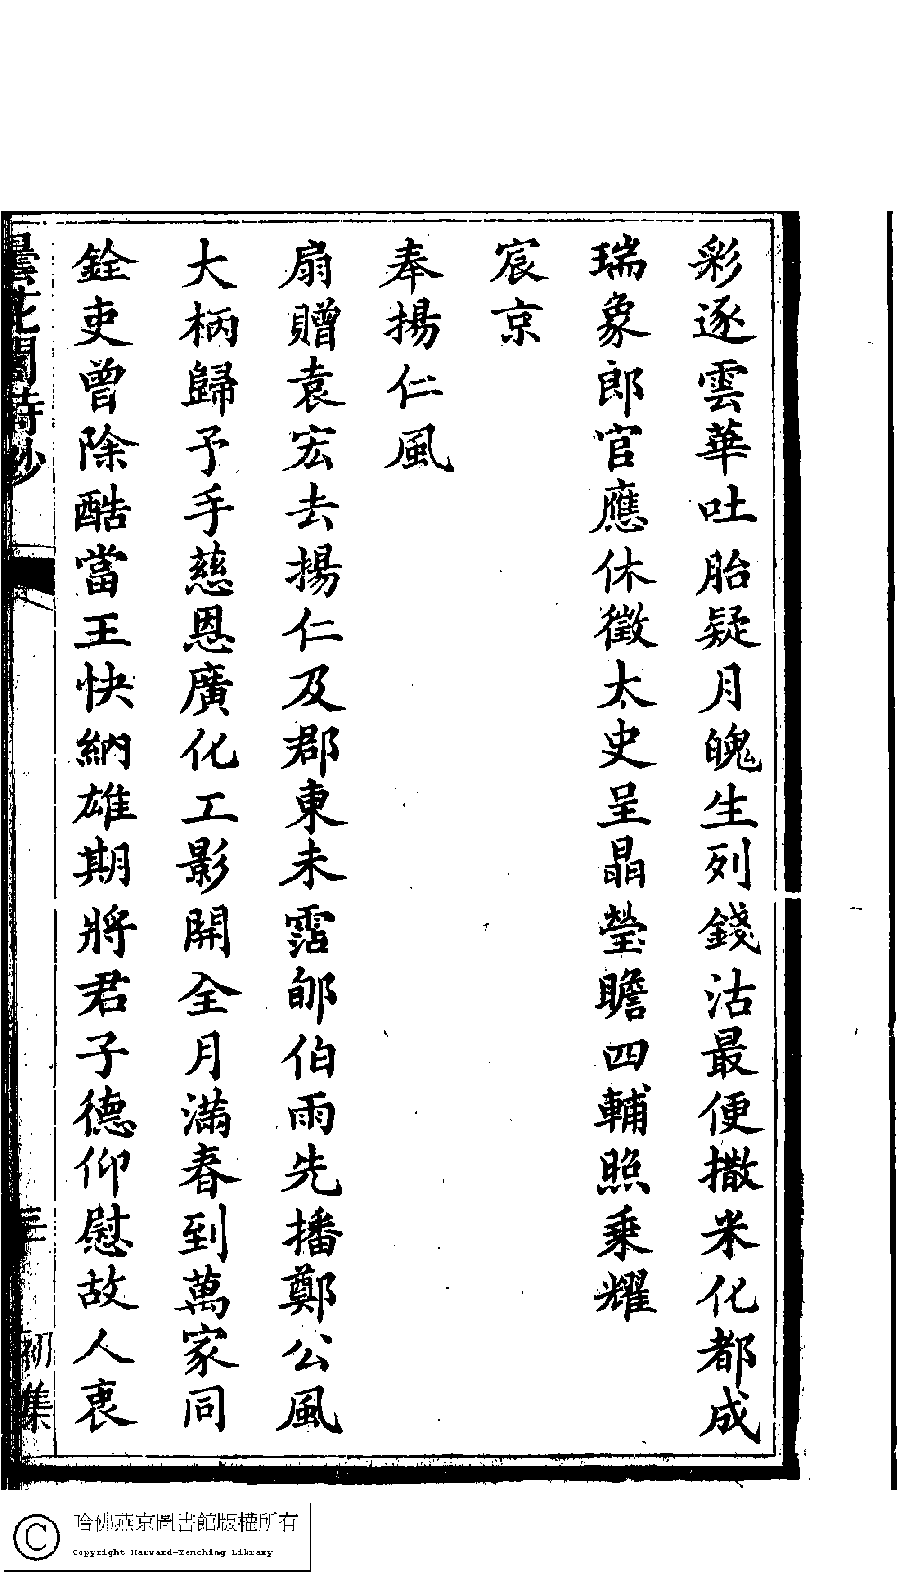 彩逐雲華吐胎疑月魄生列錢沽最便撒米化都成
瑞象郎官應休徵太史呈晶瑩瞻四輔照乘耀
宸京
奉揚仁風
扇贈袁宏去揚仁及郡東未霑郇伯雨先播鄭公風
大柄歸予手慈恩廣化工影開全月滿春到萬家同
銓吏曾除酷當王快納雄期將君子德仰慰故人衷
曇花閣詩鈔
三
初集
哈佛燕京圖書館版權所有
Copyright Harvard-Yenching Library